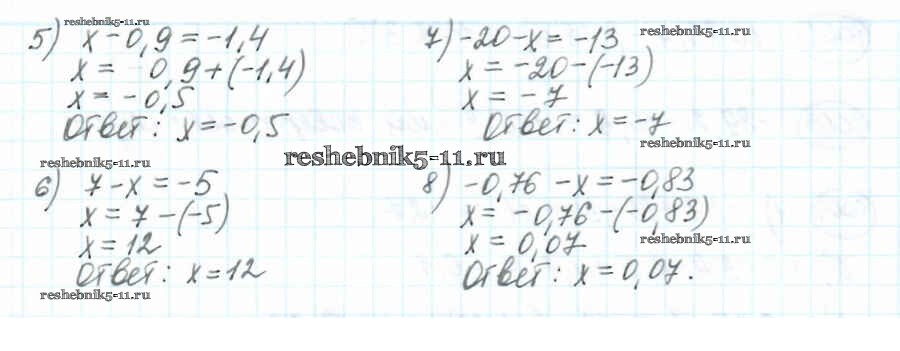 reshebnik5-11.ru
5) x - 0,9 = -1,4
x = 0,9 + (-1,4)
x = -0,5
Ответ: x = -0,5
reshebnik5-11.ru
7) -20 - x = -13
x = -20 - (-13)
x = -7
Ответ: x = -7
reshebnik5-11.ru
reshebnik5-11.ru
reshebnik5-11.ru
6) 7 - x = -5
x = 7 - (-5)
x = 12
Ответ: x = 12
reshebnik5-11.ru
8) -0,76 - x = -0,83
x = -0,76 - (-0,83)
x = 0,07
reshebnik5-11.ru
Ответ: x = 0,07.